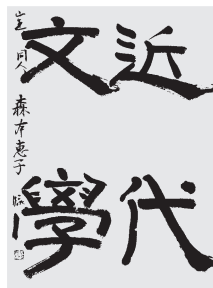 近代
文學
同人 森本恵子 臨